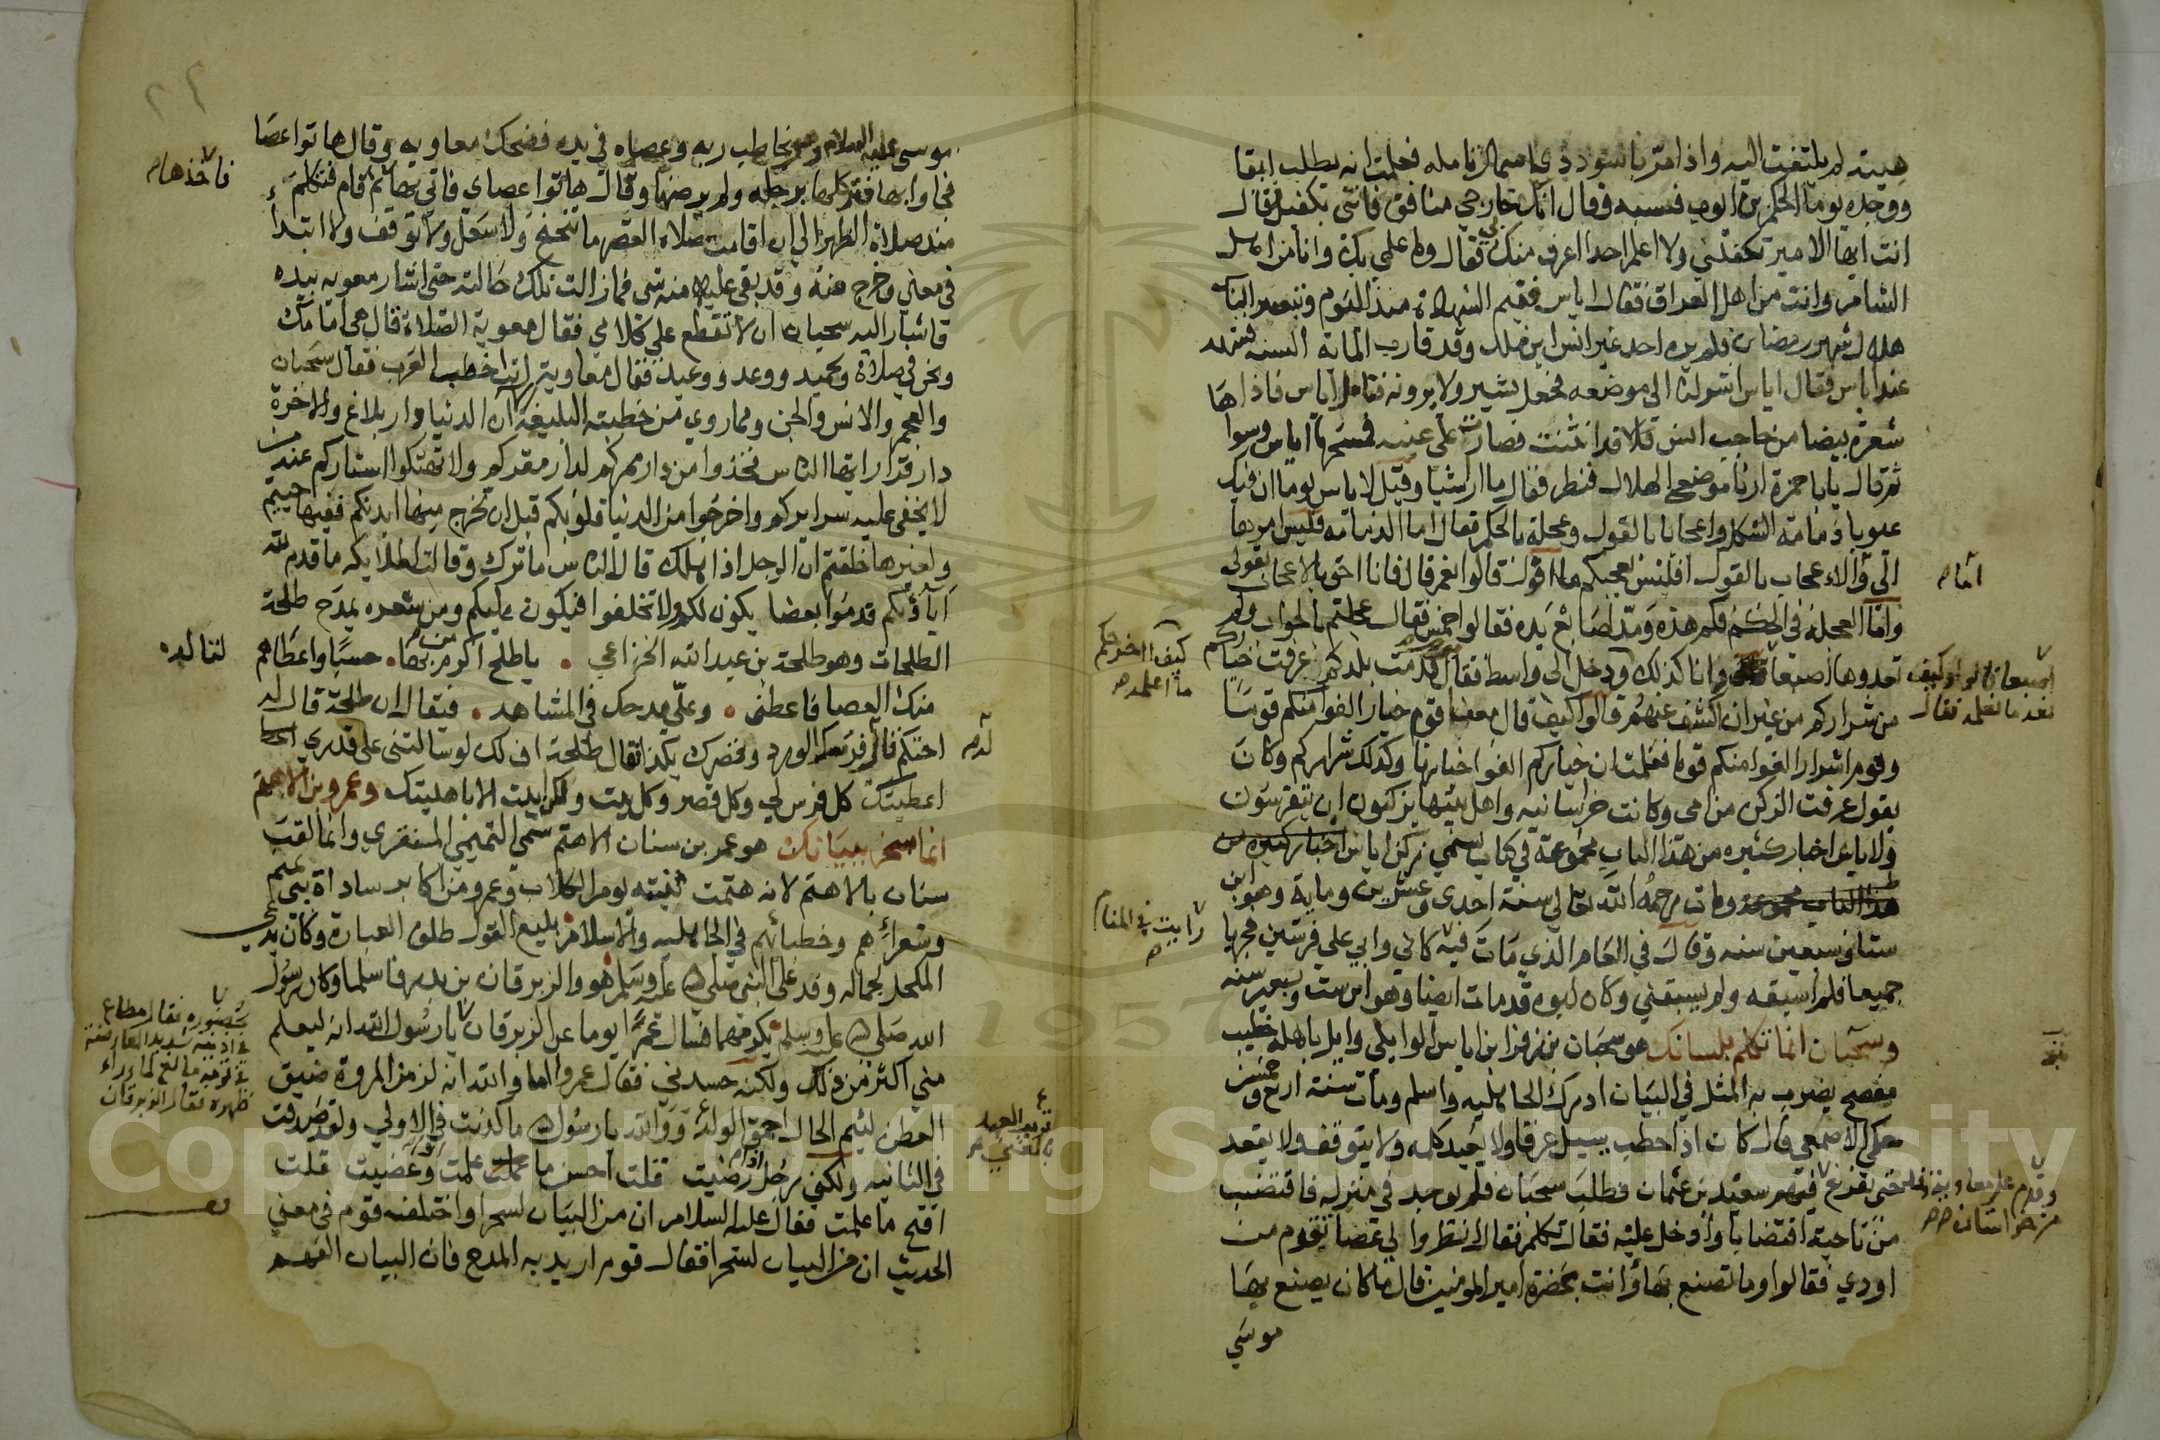 هيبته لم يلتفت اليه واذا مر باسود ذي اسمال تامله فعلمت انه يطلب ابقا
ووجده يوما الحكم بن ايوب فسبه وقال انك خارجي منافق فائتني بكفيل فقال
انت ايها الامير تكفلني ولا اعلم احدا اعرف منك بي فقال وما علمي بك وانا من اهل
الشام وانت من اهل العراق فقال اياس ففيم الشهادة منذ اليوم وتبصر الناس
هلال شهر رمضان فلم يره احد غير انس ابن ملك وقد قارب المائة السنه فشهد
عند اياس فقال اياس اشر لنا الى موضعه فجعل يشير ولا يرونه فتامل اياس فاذاها
شعرة بيضا من حاجب انس قد انثنت فصارت على عينه فمسحها اياس وسوا
ثم قال يابا حمزة ارنا موضع الهلال فنظر فقال ما ارى شيا وقيل لاياس يوما ان فيك
عيوبا ذمامة الشكل واعجابا بالقول وعجلة بالحكم فقال اما الدمامه فليس امرها
الي والاعجاب بالقول افليس يعجبكم ما اقول قالوا نعم قال فانا احق بالاعجاب بقولي
واما العجلة في الحكم فكم هذه ومد اصابع يده فقالوا خمس فقال عجلتم بالجواب ولم
تعدوها اصبعا وانا كذلك ودخل الى واسط فقال يوم قدمت بلدكم عرفت خياركم
من شراركم من غير ان اكشف عنهم قالوا كيف قال معنا قوم خيار الفوا منكم قوما
وقوم اشرار الفوا منكم قوما فعلمت ان خياركم الفوا خيارنا وكذلك شراركم وكان
يقول عرفت الزكن من امي وكانت خراسانيه واهل بيتها يزكنون اي يتفرسون
ولاياس اخبار كثيره من هذا الباب مجموعة في كتاب يسمي زكن اياس اخبار كثيرة من
هذا الباب مجموعة ومات رحمه الله تعالى سنة احدى وعشرين وماية وهو ابن
ست وسبعين سنه وقال في العام الذي مات فيه كاني وابي على فرسين فجريا
جميعا فلم اسبقه ولم يسبقني وكان ابوه قد مات ايضا وهو ابن ست وسبعين سنه
وسحبان انما تكلم بلسانك هو سحبان بن زفر ابن اياس الوايلي وايل باهلة خطيب
مفصح يضرب به المثل في البيان ادرك الجاهليه واسلم ومات سنة اربع وخمسين
حكى الاصمعي قال كان اذا خطب يسيل عرقا ولا يعيد كلمه ولا يتوقف ولا يقعد
حتى يفرغ فيهم سعيد بن عثمان فطلب سحبان فلم يوجد في منزله فاقتضب
من ناحية اقتضابا وادخل عليه فقال تكلم فقال انظروا لي عصا تقوم من
اودي فقالوا وما تصنع بها وانت بحضرة امير المومنين قال ما كان يصنع بها
موسي
امام
اصبعا قالوا وكيف
نعد ما نعلمه فقال
كيف اخرجكم
ما اعلمه
رايت في المنام
وقدم على معاوية وفد
من خراسان
موسى عليه السلام وهو يخاطب ربه وعصاه في يده فضحك معاويه وقال هاتوا عصا
فجاوا بها فركلها برجله ولم يرضها وقال هاتوا عصاي فاتي بها ثم قام فتكلم
منذ صلاة الظهر الى ان اقامت صلاة العصر ما تنحنح ولا سعل ولا توقف ولا ابتدا
في معني وخرج عنه وقد بقى عليه منه شي فما زالت تلك حالته حتى اشار معويه بيده
فاشار اليه سحبان ان لا تقطع علي كلامي فقال معوية الصلاة قال هي امامك
ونحن في صلاة وتحميد ووعد ووعيد فقال معاوية انت اخطب العرب فقال سحبان
والعجم والانس والجن ومما روي من خطبته البليغة ان الدنيا دار بلاغ والاخرة
دار قرار ايها الناس فخذوا من دار ممركم لدار مقركم ولا تهتكوا استاركم عند من
لا يخفى عليه سرايركم واخرجوا من الدنيا قلوبكم قبل ان تخرج منها ابدانكم ففيها حييتم
ولغيرها خلقتم ان الرجل اذا هلك قال الناس ما ترك وقالت الملايكه ما قدم لله
آباؤكم قدموا بعضا يكون لكم ولا تخلفوا فيكون عليكم ومن شعره يمدح طلحة
الطلحات وهو طلحة بن عبد الله الخزاعي . ياطلح اكرم من بها . حسبا واعطاهم
لتالد
منك العطا فاعطني . وعلي مدحك في المشاهد . فيقال ان طلحة قال له
احتكم قال فرسك الورد وقصرك بكذا فقال طلحة اف لك لو سالتني على قدري
اعطيتك كل فرس لي وكل قصر وكل بيت ولكن ابيت الا باهليتك وعمرو بن الاهتم
انما سحر ببيانك هو عمر بن سنان الاهتم سمي التميمي المنقري وانما لقب
سنان بالاهتم لانه هتمت ثنيته يوم الكلاب وعمرو من اكابر ساداة بني تميم
وشعرائهم وخطبائهم في الجاهليه والاسلام بليغ القول طلق العبارة وكان يدعى
المكحل لجماله وفد على النبي صلى الله عليه وسلم هو والزبرقان بن بدر فاسلما وكان رسول
الله صلى الله عليه وسلم يكرمهما فسال عمرا يوما عن الزبرقان يا رسول الله انه ليعلم
مني اكثر من ذلك ولكنه حسدني فقال عمرو اما والله انه لزمر المروة ضيق
العطن لئيم الخال احمق الوالد ووالله يا رسول الله ما كذبت في الاولي ولقد صدقت
في الثانيه ولكني رجل رضيت فقلت احسن ما علمت وغضبت فقلت
اقبح ما علمت فقال عليه السلام ان من البيان لسحرا واختلف قوم في معني
الحديث ان من البيان لسحرا فقال قوم اريد به المدح فان البيان الفهم
فاخذها
له
بحضوره فقال مطاع
في ادنيه شديد العارضة
في قومه مانع لما وراء
ظهره فقال الزبرقان